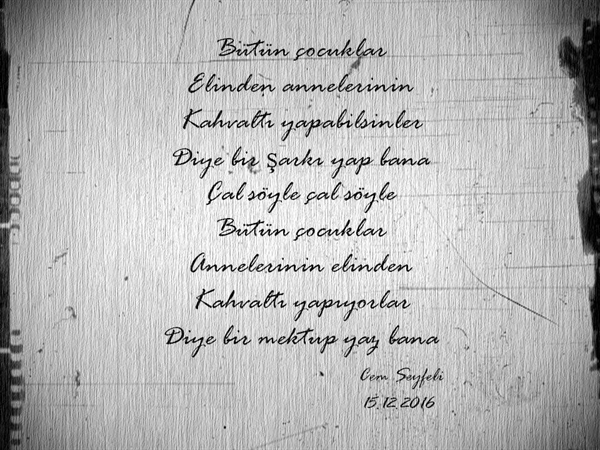 Bütün çocuklar
Elinden annelerinin
Kahvaltı yapabilsinler
Diye bir Şarkı yap bana
Çal söyle çal söyle
Bütün çocuklar
Annelerinin elinden
Kahvaltı yapıyorlar
Diye bir mektup yaz bana
Cem Seyfeli
15.12.2016